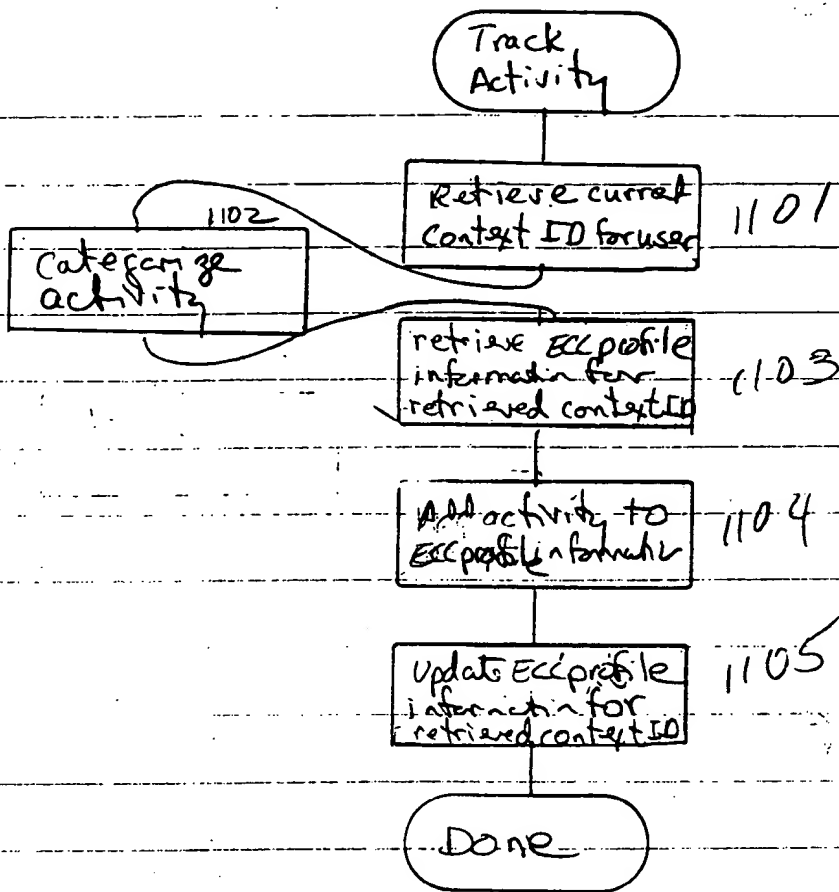 Track
Activity
Retrieve current
Context ID for user
1101
1102
Categorize
activity
retrieve ECC profile
information for
retrieved context ID
1103
Add activity to
ECC profile information
1104
Update ECC profile
information for
retrieved context ID
1105
Done